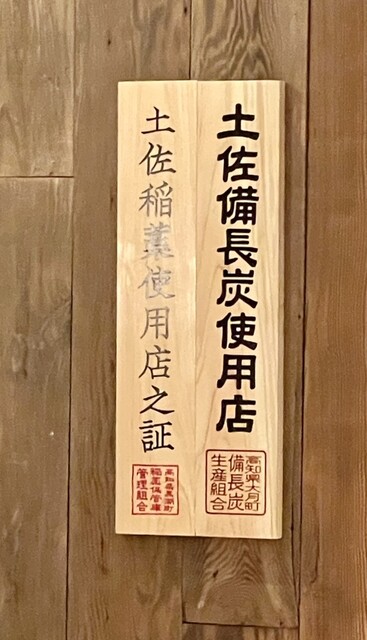 土佐備長炭使用店
高知県大月町
備長炭
生産組合
土佐稲藁使用店之証
高知県黒潮町
稲藁保管庫
管理組合